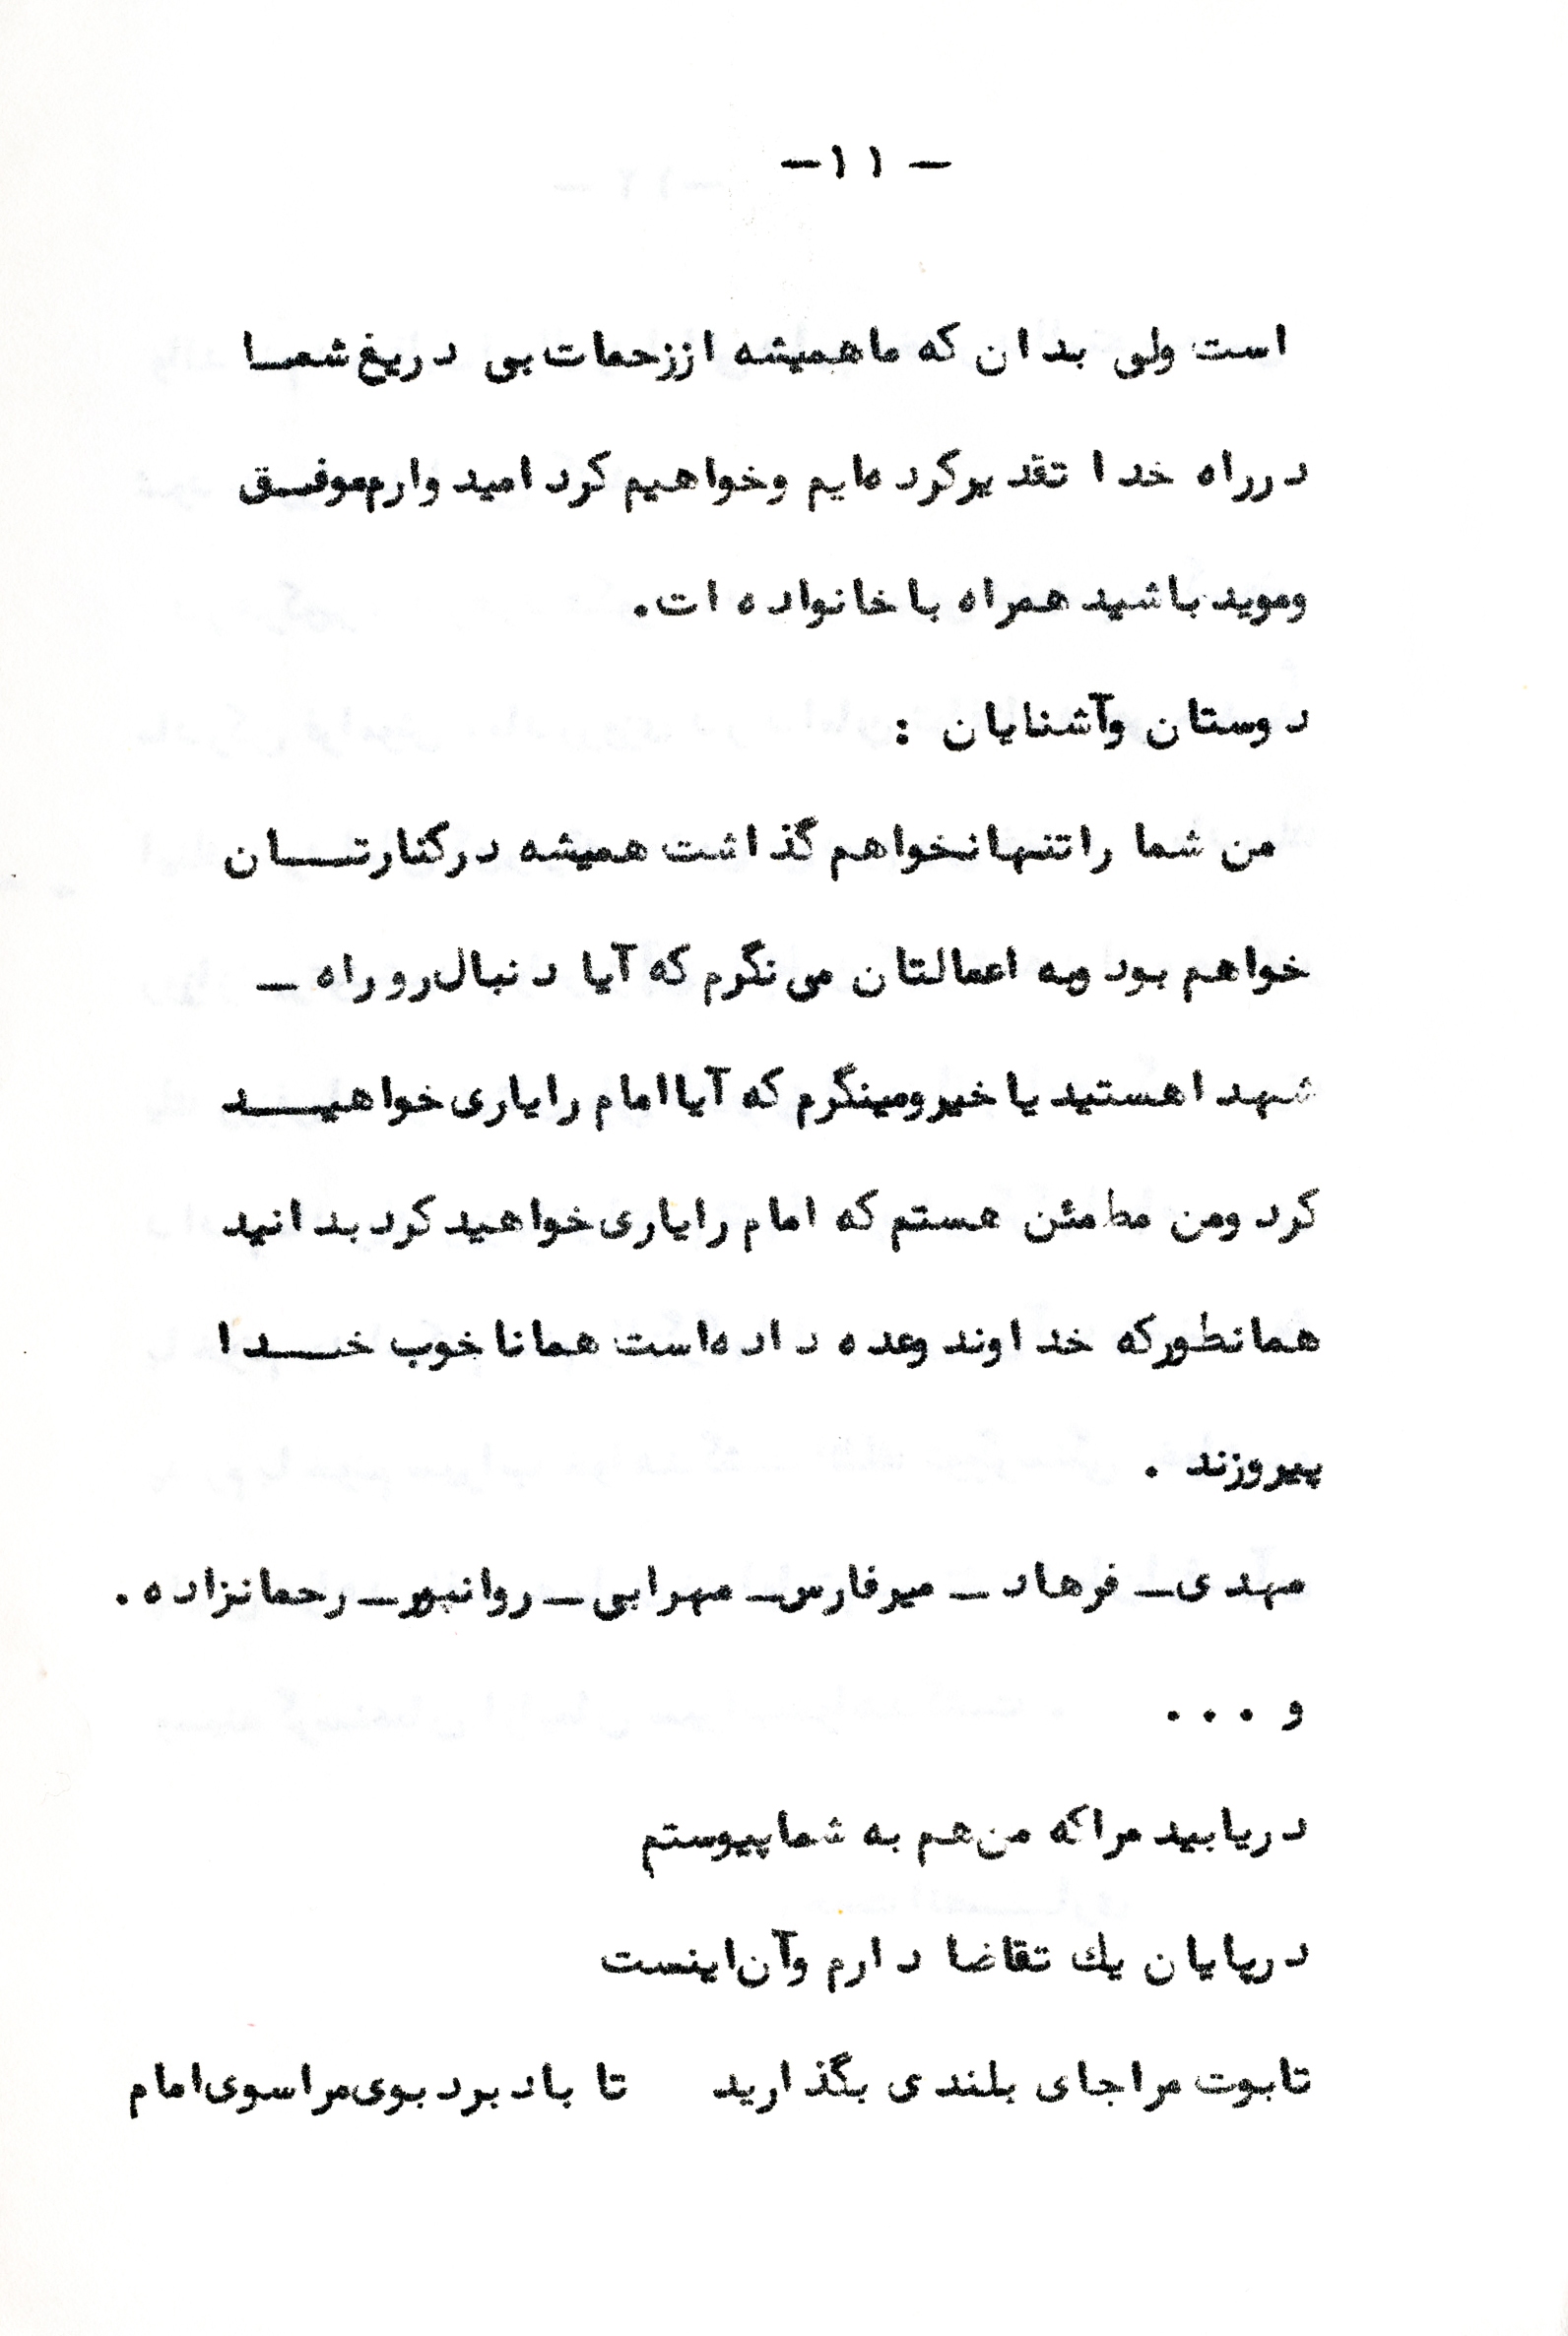 — ۱۱ —
است ولی بدان که ما همیشه از زحمات بی دریغ شمـا
در راه خدا تقدیر کرده‌ایم و خواهیم کرد امید وارم موفـق
و موید باشید همراه با خانواده ات.
دوستان و آشنایان :
من شما را تنها نخواهم گذاشت همیشه در کنارتـــان
خواهم بود و به اعمالتان می نگرم که آیا دنبال رو راه —
شهدا هستید یا خیر و مینگرم که آیا امام را یاری خواهیـــد
کرد و من مطمئن هستم که امام را یاری خواهید کرد بدانید
همانطور که خداوند وعده داده‌است همانا خوب خـــدا
پیروزند .
مهدی — فرهاد — میرفارس — مهرابی — روانپور — رحمانزاده .
و . . .
دریابید مرا که من هم به شما پیوستم
در پایان یك تقاضا دارم و آن اینست
تابوت مرا جای بلندی بگذارید تا باد برد بوی مرا سوی امام